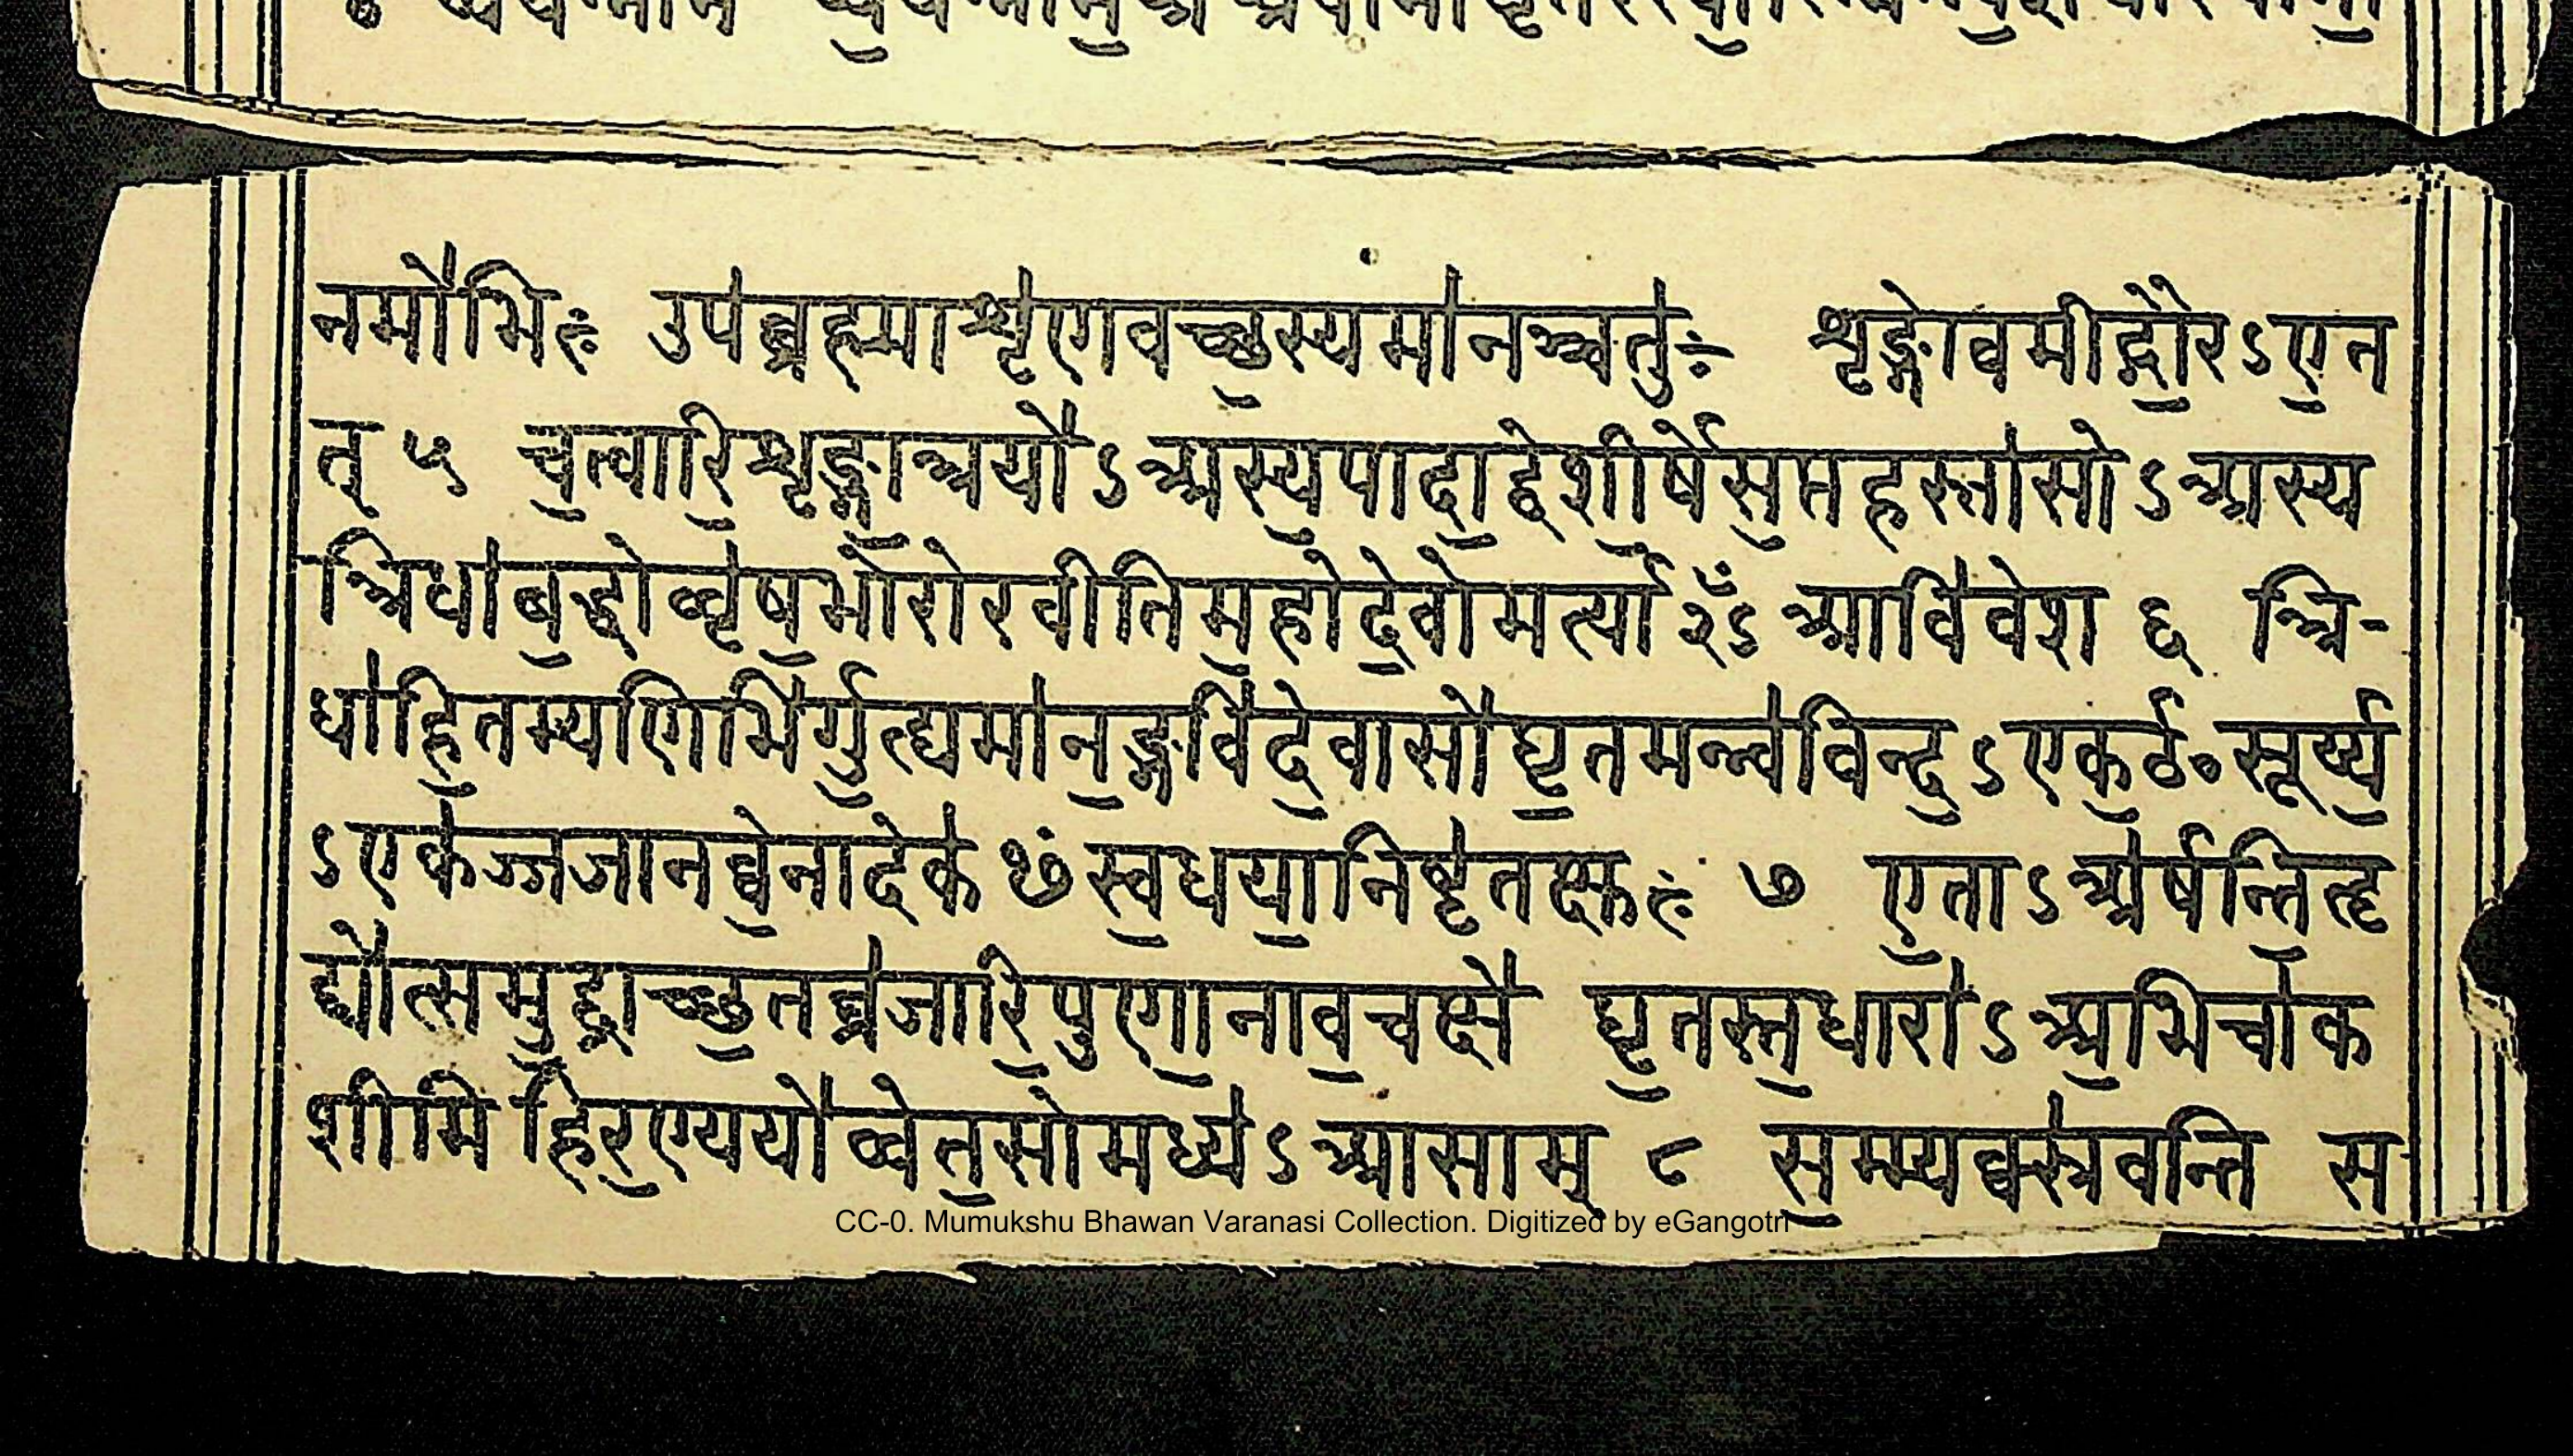 नमो॑भिः उप॑ब्ब्रह्माशृ॑णवच्छ॒स्यमा॑नञ्चतु॑ः शृङ्गोवमीद्गौ॒रऽए॒त
त् ५ च॒त्वारि॒शृङ्गा॒त्रयो॑ऽअस्य॒पादा॒द्वेशी॒र्षेस॒प्तहस्ता॑सोऽअस्य
त्रिधा॑ब॒द्धोव्वृ॑ष॒भोरो॑रवीतिम॒होदे॒वोमर्त्यां२ँऽआवि॑वेश ६ त्रि-
धा॑हि॒तम्पणिभि॑र्गु॒ह्यमा॑न॒ङ्गवि॑दे॒वासो॑घृ॒तमन्व॑विन्द॒ऽएक॒ᳪ सूर्य्य॒
ऽएक॑ञ्जजानव्वे॒नादेक॑ᳪ स्व॒धया॒निष्ट॑तक्षुः ७ ए॒ताऽअ॑र्षन्ति॒हृ
द्यो॑त्समु॒द्राच्छ॒तव्र॑जारि॒पुणा॒नाव॒चक्षे॑ घृ॒तस्त॒धारा॑ऽअ॒भिचा॑क
शीमि हिर॒ण्ययो॑व्वेत॒सोमध्य॑ऽआसाम् ८ स॒म्म्यक्स्र॑वन्ति स
CC-0. Mumukshu Bhawan Varanasi Collection. Digitized by eGangotri